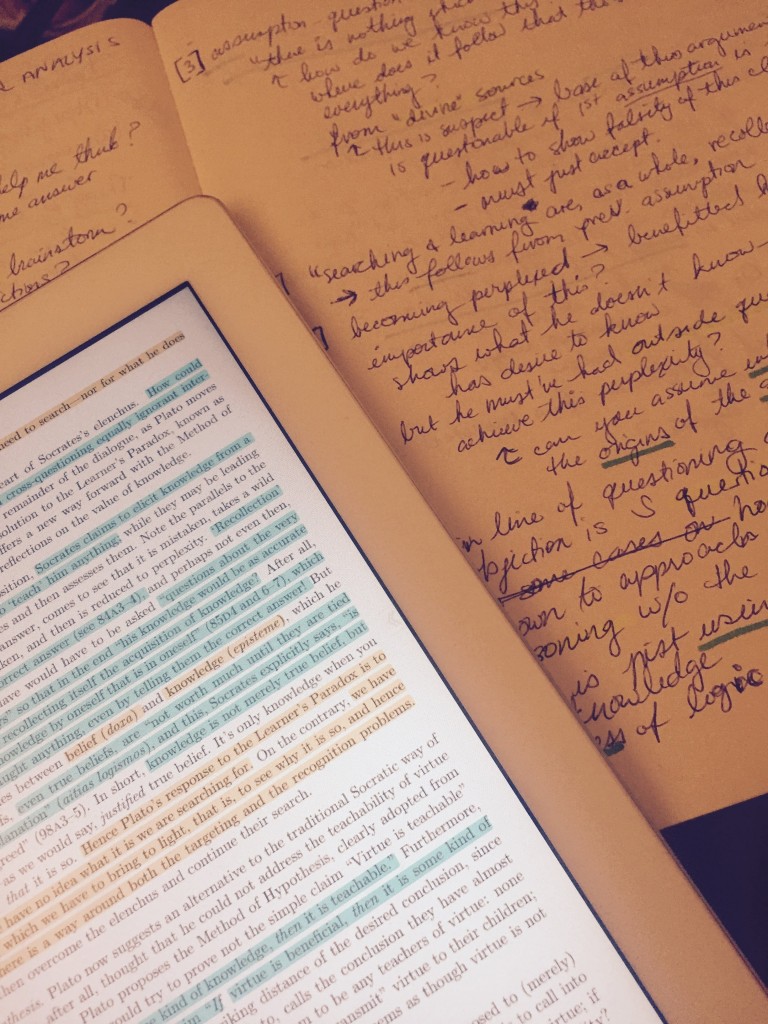 ANALYSIS
help me think?
me answer
brainstorm?
[3] assumption question
"there is nothing
↑ how do we know this
where does it follow that the
everything?
from "divine" sources
↑ this is suspect → base of this argument
is questionable if 1st assumption is
- how to show falsity of this
- must just accept.
"searching & learning are, as a whole, recolle
→ this follows from prev. assumption
becoming perplexed → benefitted
importance of this?
shows what he doesn't know
has desire to know
but he must've had outside
achieve this perplexity?
↑ can you assume
the origins of the
in line of questioning
is S questio
some cases
own to approach
w/o the
is just using
knowledge
of logic
need to search—nor for what he does
art of Socrates's elenchus. How could
cross-questioning equally ignorant inter-
remainder of the dialogue, as Plato moves
solution to the Learner's Paradox, known as
offers a new way forward with the Method of
reflections on the value of knowledge.
sition, Socrates claims to elicit knowledge from a
"teach" him anything; while they may be leading
s and then assesses them. Note the parallels to the
answer, comes to see that it is mistaken, takes a wild
ken, and then is reduced to perplexity. "Recollection"
correct answer (see 84A3-4), and perhaps not even then,
ave would have to be asked "questions about the very
s" so that in the end "his knowledge would be as accurate
recollecting itself the acquisition of knowledge? After all,
owledge by oneself that is in oneself" (85D4 and 6-7), which
aught anything, even by telling them the correct answer! But
es between belief (doxa) and knowledge (episteme), which he
s, even true beliefs, are "not worth much until they are tied
anation" (aitias logismos), and this, Socrates explicitly says, "is
reed" (98A3-5). In short, knowledge is not merely true belief, but
as we would say, justified true belief. It's only knowledge when you
that it is so. Hence Plato's response to the Learner's Paradox is to
have no idea what it is we are searching for. On the contrary, we have
which we have to bring to light, that is, to see why it is so, and hence
here is a way around both the targeting and the recognition problems.
then overcome the elenchus and continue their search.
Plato now suggests an alternative to the traditional Socratic way of
after all, thought that he could not address the teachability of virtue
thesis. Plato proposes the Method of Hypothesis, clearly adopted from
would try to prove not the simple claim "Virtue is teachable"
kind of knowledge, then it is teachable." Furthermore,
"If virtue is beneficial, then it is some kind of
iking distance of the desired conclusion, since
to, calls the conclusion they have almost
n to be any teachers of virtue: none
transmit" virtue to their children;
ems as though virtue is not
posed to (merely)
to call into
virtue; if